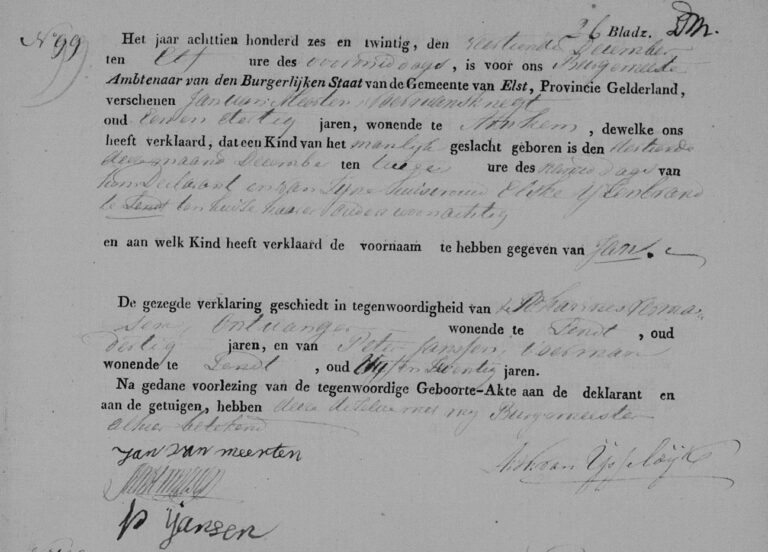 26 Bladz. DM.
No 99
Het jaar achttien honderd zes en twintig, den zestiende December
ten Elf ure des voormiddags, is voor ons Burgemeester
Ambtenaar van den Burgerlijken Staat van de Gemeente van Elst, Provincie Gelderland,
verschenen Jan van Meerten Voermansknegt
oud Een en dertig jaren, wonende te Arnhem, dewelke ons
heeft verklaard, dat een Kind van het manlijk geslacht geboren is den dertiende
deser maand December ten twee ure des namiddags van
hem Declarant en van zijne huisvrouw Elske IJsenbrand
te Lendt ten huize haarer ouders woonachtig
en aan welk Kind heeft verklaard de voornaam te hebben gegeven van Jan.
De gezegde verklaring geschiedt in tegenwoordigheid van Johannes
Ontvanger wonende te Lendt, oud
dertig jaren, en van Peter Janssen, voerman
wonende te Lendt, oud Vyf en Twentig jaren.
Na gedane voorlezing van de tegenwoordige Geboorte-Akte aan de deklarant en
aan de getuigen, hebben deze dezelve met my Burgemeester
alhier getekend
Jan van meerten
p Yansen